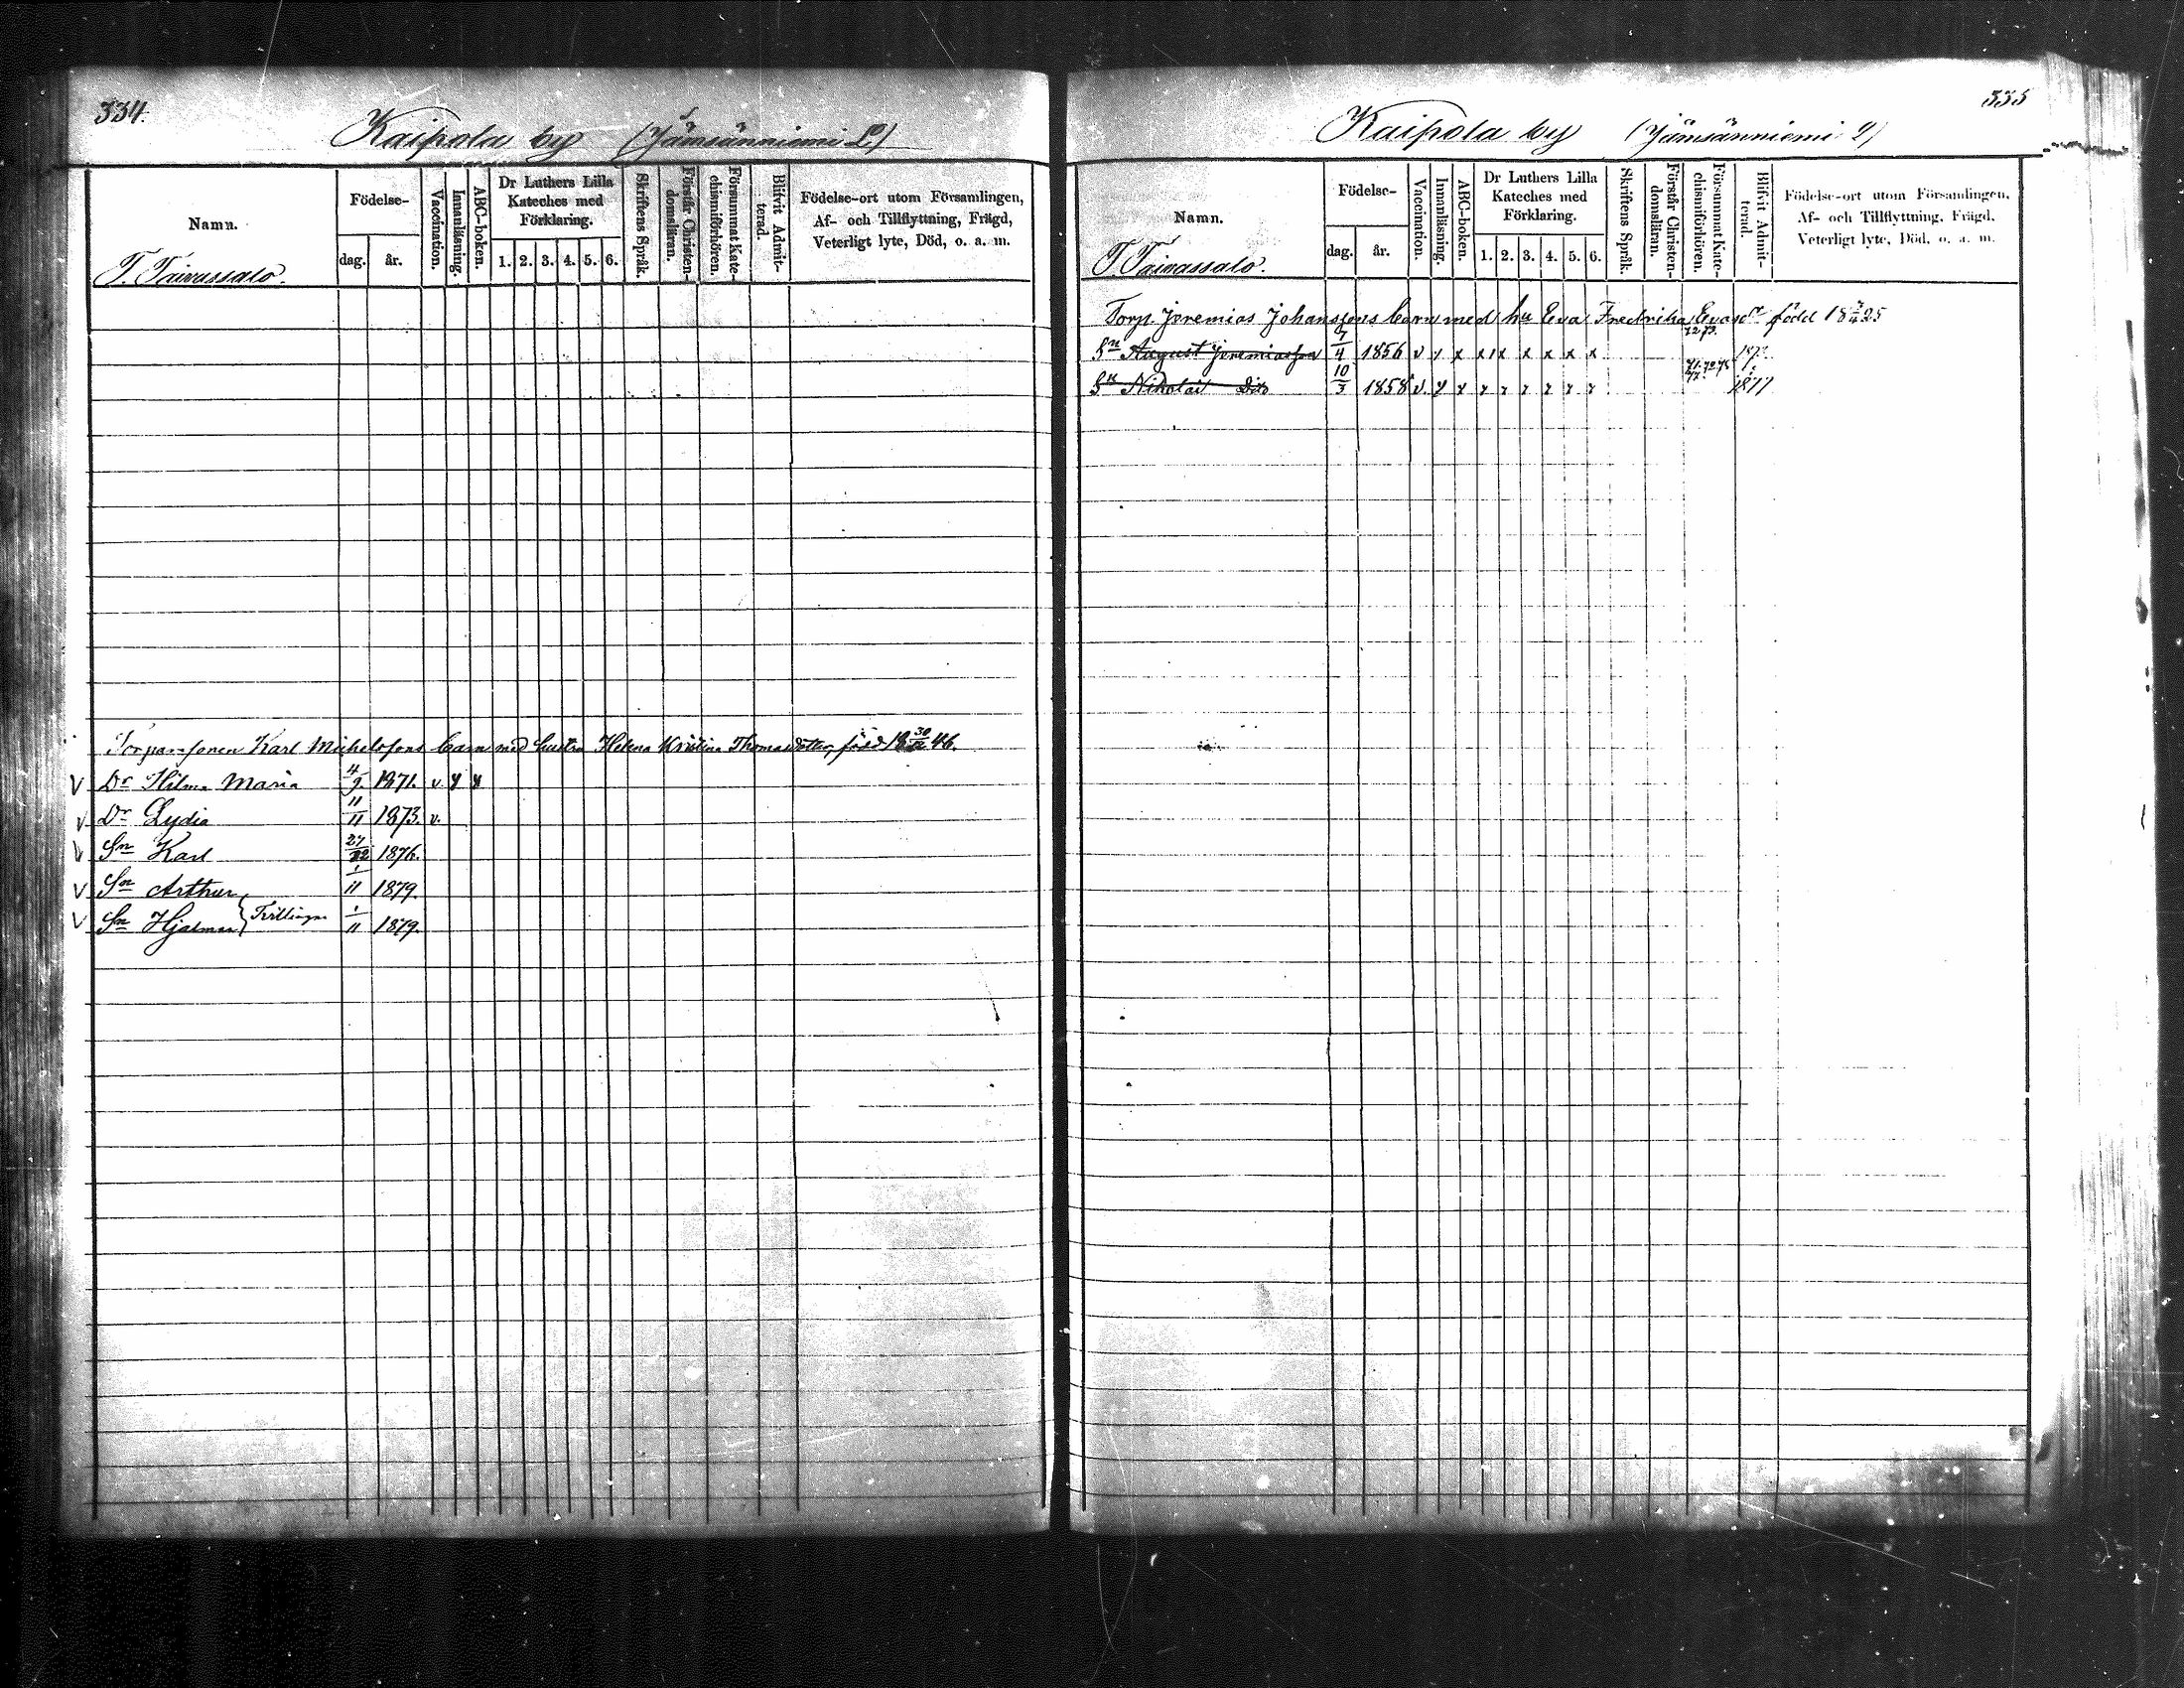 334.
Kaipola by (Jämsänniemi 2)
Namn.
Födelse-
dag.
år.
Vaccination.
Innanläsning.
ABC-boken.
Dr Luthers Lilla
Kateches med
Förklaring.
1. 2. 3. 4. 5. 6.
Skriftens Språk.
Förstår Christen-
domsläran.
Försummat Kate-
chismiförhören.
Blifvit Admit-
terad.
Födelse-ort utom Församlingen,
Af- och Tillflyttning, Frägd,
Veterligt lyte, Död, o. a. m.
T. Taivassalo.
Torparesonen Karl Michelssons barn med hustru Helena Kristina Thomasdotter, född 18 30/12 46.
V Dr Hilma Maria 4/9 1871. v. y y
V Dr Lydia 11/11 1873. v.
V Sn Karl 27/12 1876.
V Sn Arthur 1/11 1879.
V Sn Hjalmar } Tvillingar 1/11 1879.
335
Kaipola by (Jämsänniemi 2)
Namn.
Födelse-
dag.
år.
Vaccination.
Innanläsning.
ABC-boken.
Dr Luthers Lilla
Kateches med
Förklaring.
1. 2. 3. 4. 5. 6.
Skriftens Språk.
Förstår Christen-
domsläran.
Försummat Kate-
chismiförhören.
Blifvit Admit-
terad.
Födelse-ort utom Församlingen,
Af- och Tillflyttning, Frägd,
Veterligt lyte, Död, o. a. m.
T. Taivassalo.
Torp. Jeremias Johanssons barn med hu Eva Fredrika född 18 25
Sn August Jeremiasson 7/4 1856 v y x x x x x x x 72.73.
Sn Nikolai Dito 10/3 1858 v. y x x x x x x x 1877